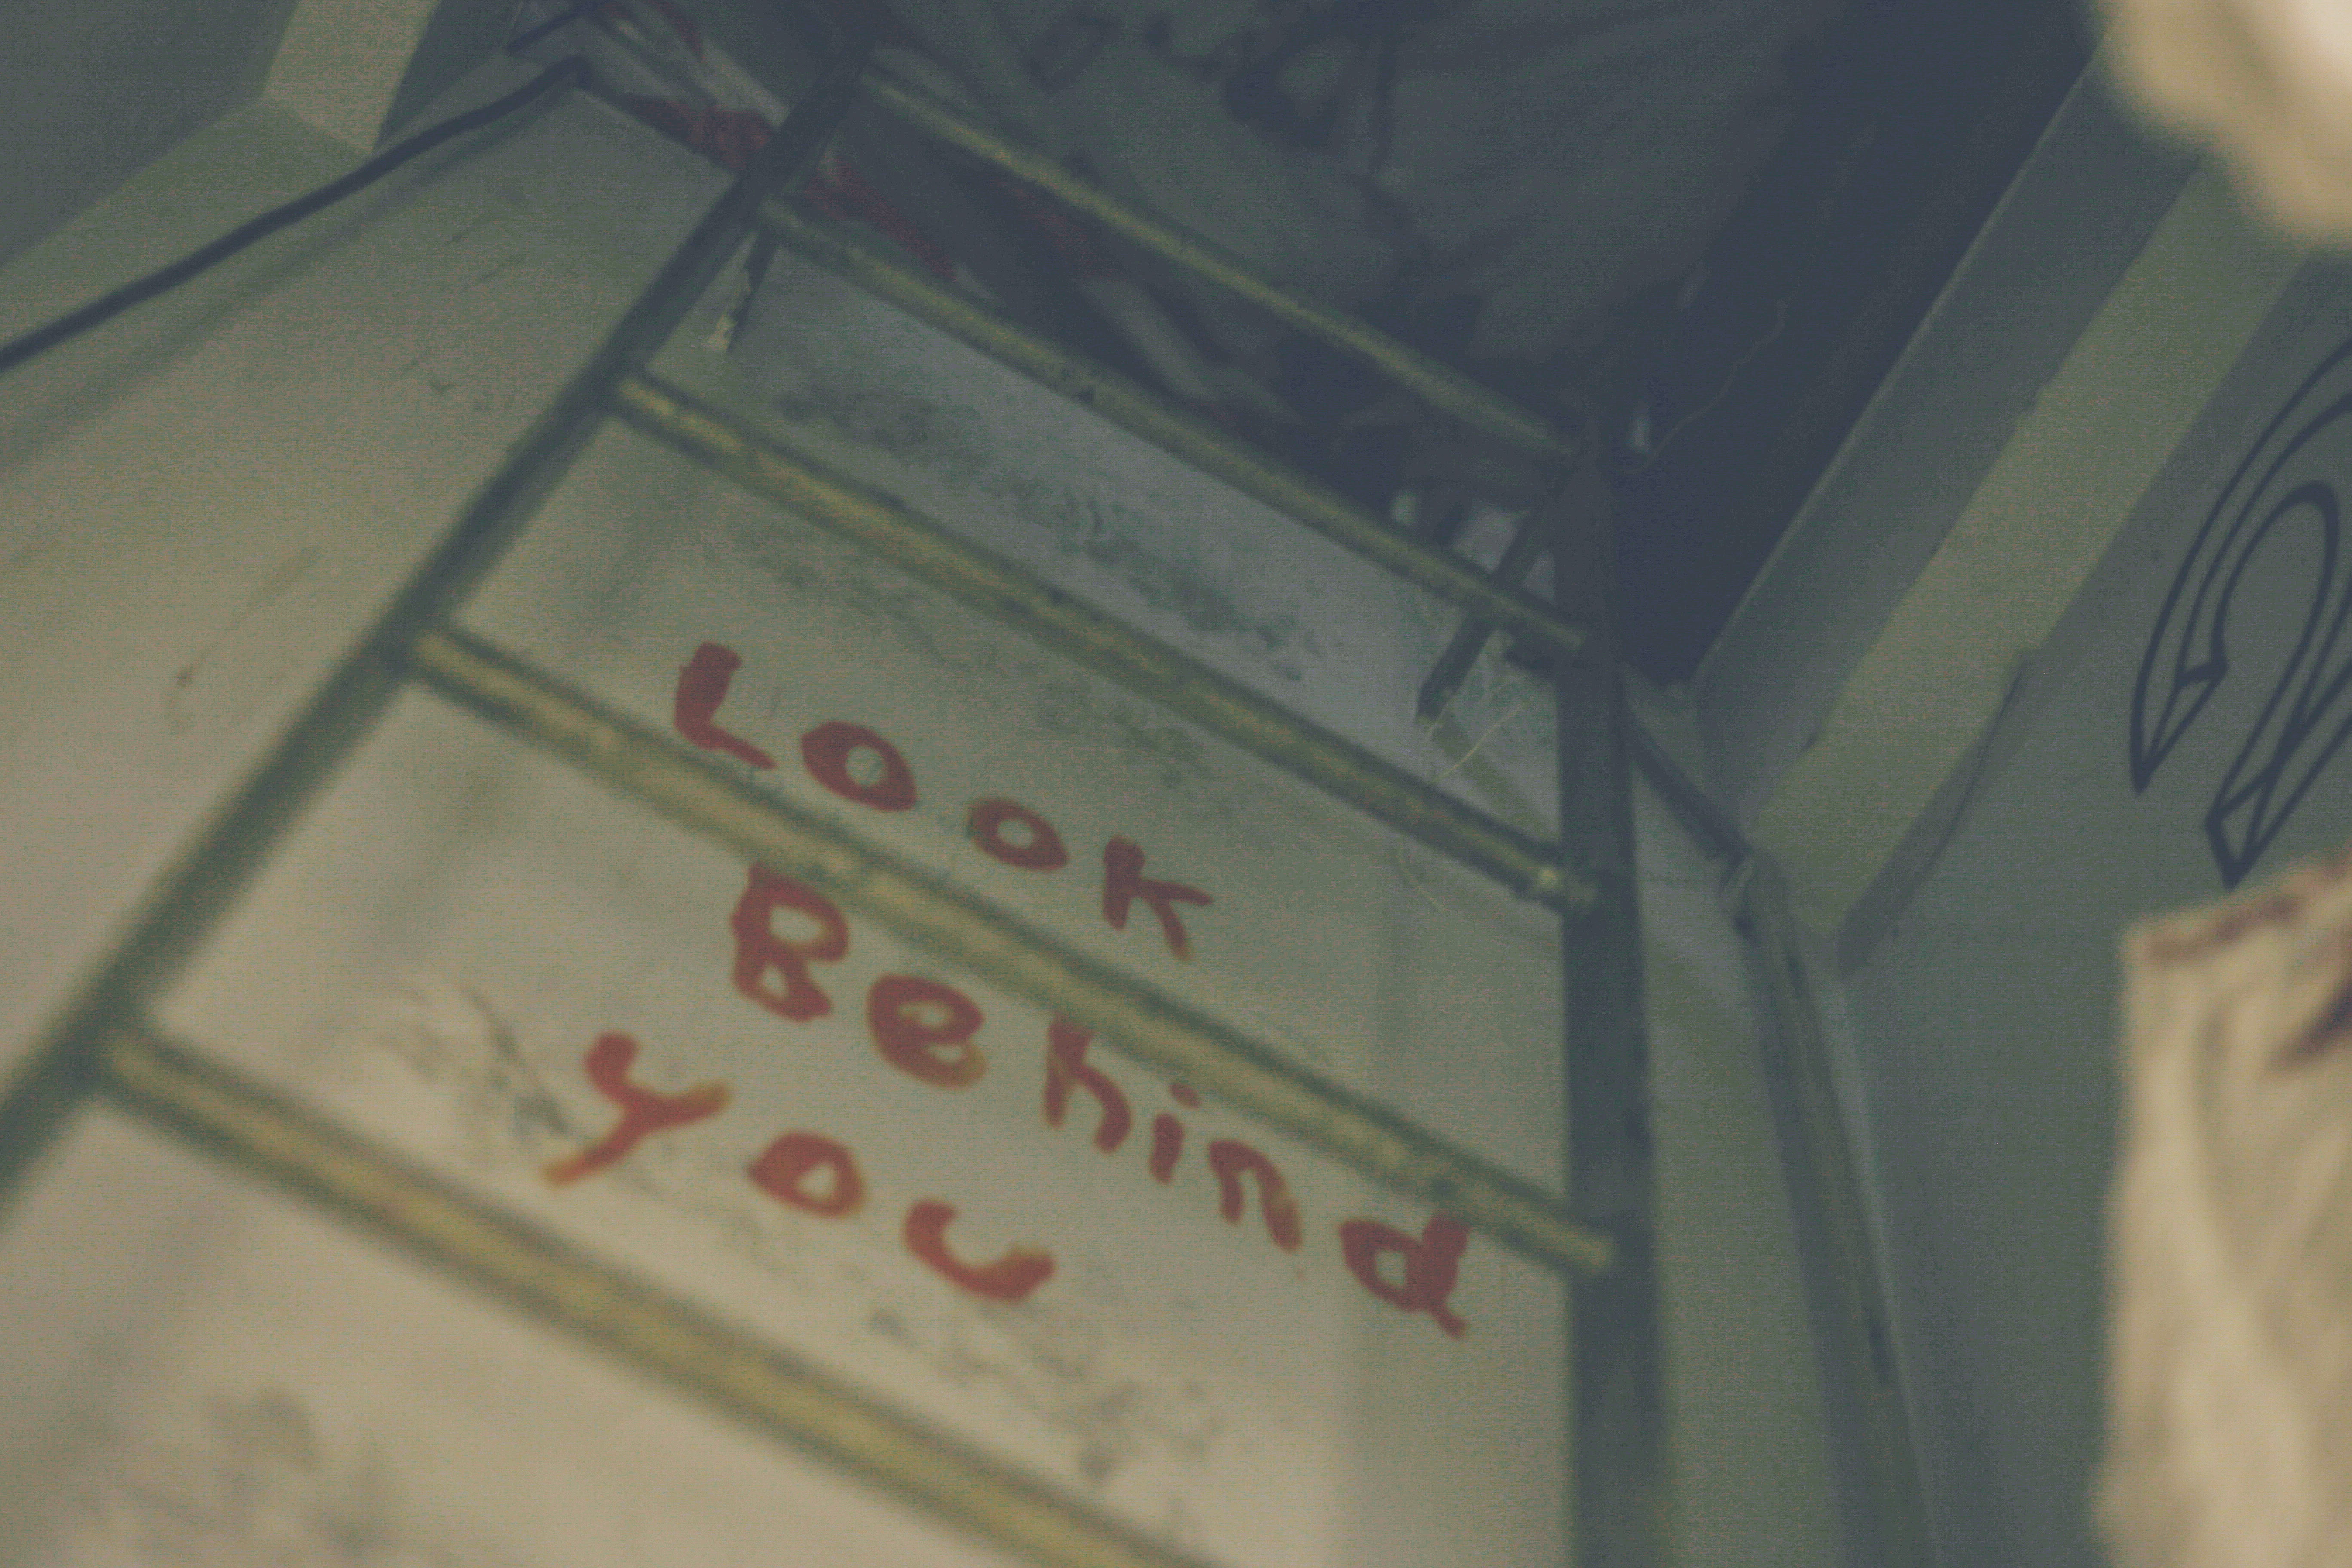 Look
Behind
You